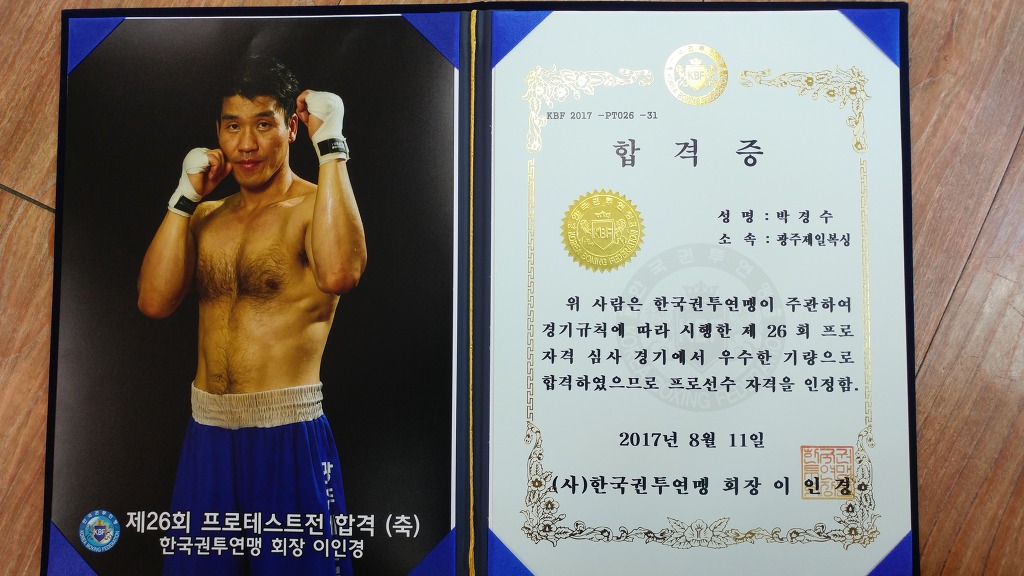 제26회 프로테스트전 합격 (축)
한국권투연맹 회장 이인경
KBF
KBF 2017 -PT026 -31
합 격 증
KBF
성 명 : 박 경 수
소 속 : 광주제일복싱
위 사람은 한국권투연맹이 주관하여
경기규칙에 따라 시행한 제 26 회 프로
자격 심사 경기에서 우수한 기량으로
합격하였으므로 프로선수 자격을 인정함.
2017년 8월 11일
(사)한국권투연맹 회장 이 인 경